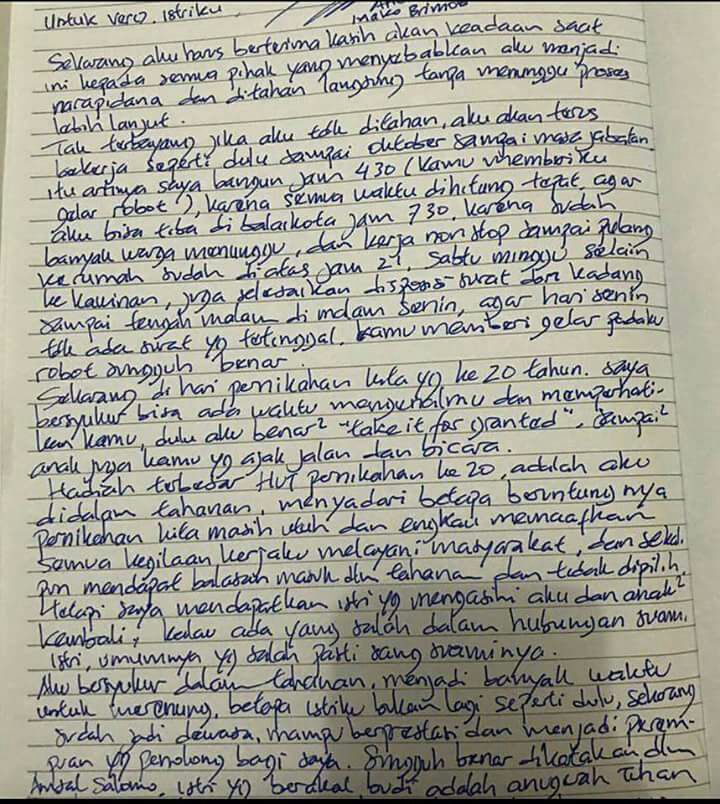 Untuk Vero, istriku
Mako Brimob
Sekarang aku harus berterima kasih akan keadaan saat
ini kepada semua pihak yang menyebabkan aku menjadi
narapidana dan ditahan langsung tanpa menunggu proses
lebih lanjut.
Tak terbayang jika aku tdk ditahan, aku akan terus
bekerja seperti dulu sampai Oktober sampai masa jabatan
itu artinya saya bangun jam 430 (kamu memberiku
gelar robot), karena semua waktu dihitung tepat, agar
aku bisa tiba di balaikota jam 730. Karena sudah
banyak warga menunggu, dan kerja non stop sampai pulang
kerumah sudah diatas jam 21. Sabtu minggu selain
ke kawinan, juga selesaikan disposisi surat dan kadang
sampai tengah malam di malam senin, agar hari senin
tdk ada surat yg tertinggal. Kamu memberi gelar padaku
robot sungguh benar.
Sekarang di hari pernikahan kita yg ke 20 tahun. saya
bersyukur bisa ada waktu mengurusimu dan memperhati-
kan kamu, dulu aku benar² "take it for granted", sampai²
anak juga kamu yg ajak jalan dan bicara.
Hadiah terbesar HUT pernikahan ke 20, adalah aku
didalam tahanan, menyadari betapa beruntungnya
pernikahan kita masih utuh dan engkau memaafkan
semua kegilaan kerjaku melayani masyarakat, dan seka
pun mendapat balasan masuk dlm tahanan dan tidak dipilih.
tetapi saya mendapatkan istri yg mengasihi aku dan anak²
kembali, kalau ada yang salah dalam hubungan suami
istri, umumnya yg salah pasti sang suaminya.
Aku bersyukur dalam tahanan, menjadi banyak waktu
untuk merenung, betapa istriku bukan lagi seperti dulu, sekarang
sudah jadi dewasa, mampu berprestasi dan menjadi perem-
puan yg penolong bagi saya. Sungguh benar dikatakan dlm
Amsal Salomo, istri yg berakal budi adalah anugerah Tuhan